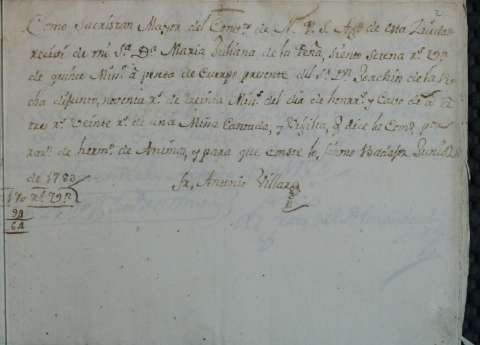 Como Sacristan Mayor del Conv.to de N. P. S. Ag.n de esta
recivi de mi S.ra D.a Maria Juliana de la Peña, siento setena r.s v.n
de quince Mis.s a punta de Cuerpo presente del S.r D.n Joachin de la
cha difunto, noventa r.s de treinta Mis.s del dia de honrr.s y Cavo de
tres r.s veinte r.s de una Misa Cantada, y Vigilia, q. dice la Com.d por
de herm.o de Animas, y para que conste lo firmo Badajoz Junio
de 1780
Fr. Antonio Villar
170 r.s v.n
90